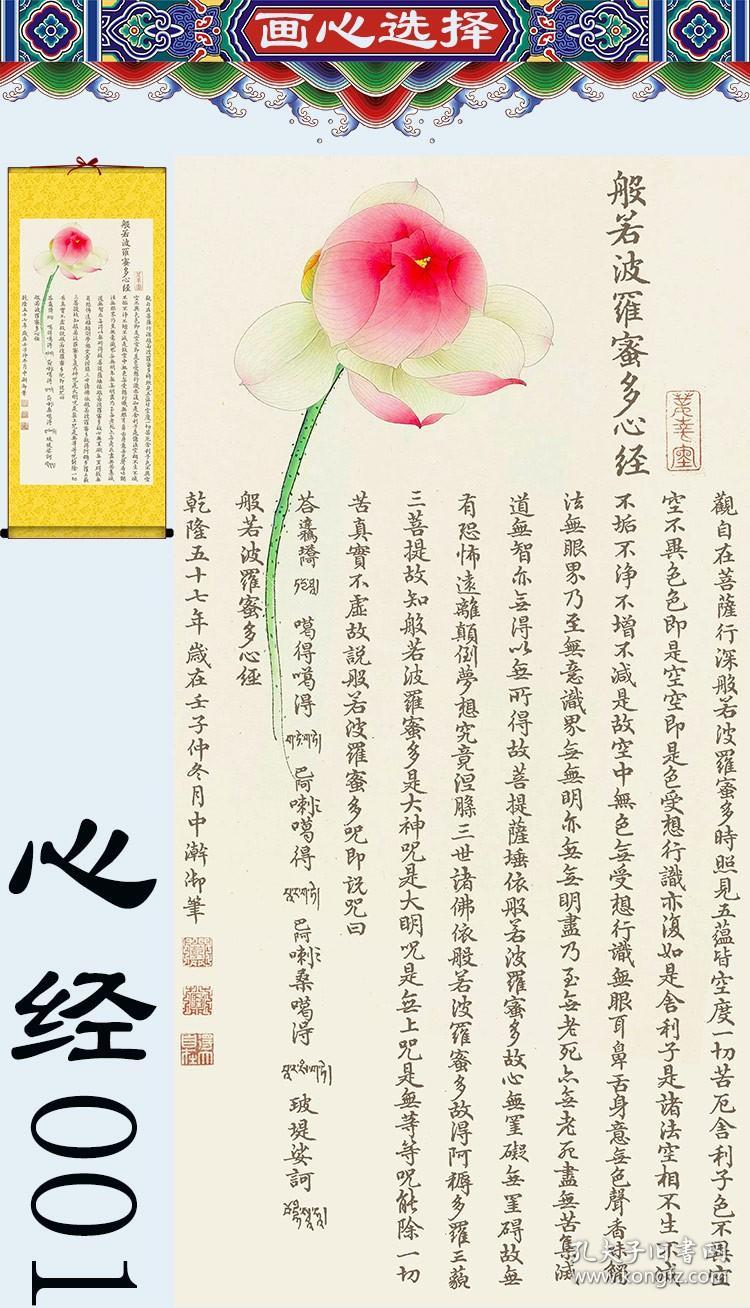 画心选择
般若波羅蜜多心经
觀自在菩薩行深般若波羅蜜多時照見五蘊皆空度一切苦厄舍利子色不異空
空不異色色即是空空即是色受想行識亦復如是舍利子是諸法空相不生不滅
不垢不浄不增不减是故空中無色無受想行識無眼耳鼻舌身意無色聲香味觸
法無眼界乃至無意識界無無明亦無無明盡乃至無老死亦無老死盡無苦集滅
道無智亦無得以無所得故菩提薩埵依般若波羅蜜多故心無罣礙無罣碍故無
有恐怖遠離顛倒夢想究竟涅槃三世諸佛依般若波羅蜜多故得阿耨多羅三藐
三菩提故知般若波羅蜜多是大神呪是大明呪是無上呪是無等等呪能除一切
苦真實不虛故説般若波羅蜜多呪即説呪曰
噶得噶得
噶得
桑噶得
玻堤娑訶
般若波羅蜜多心經
乾隆五十七年歲在壬子仲冬月中澣御筆
心经001
孔夫子旧书网
www.kongfz.com